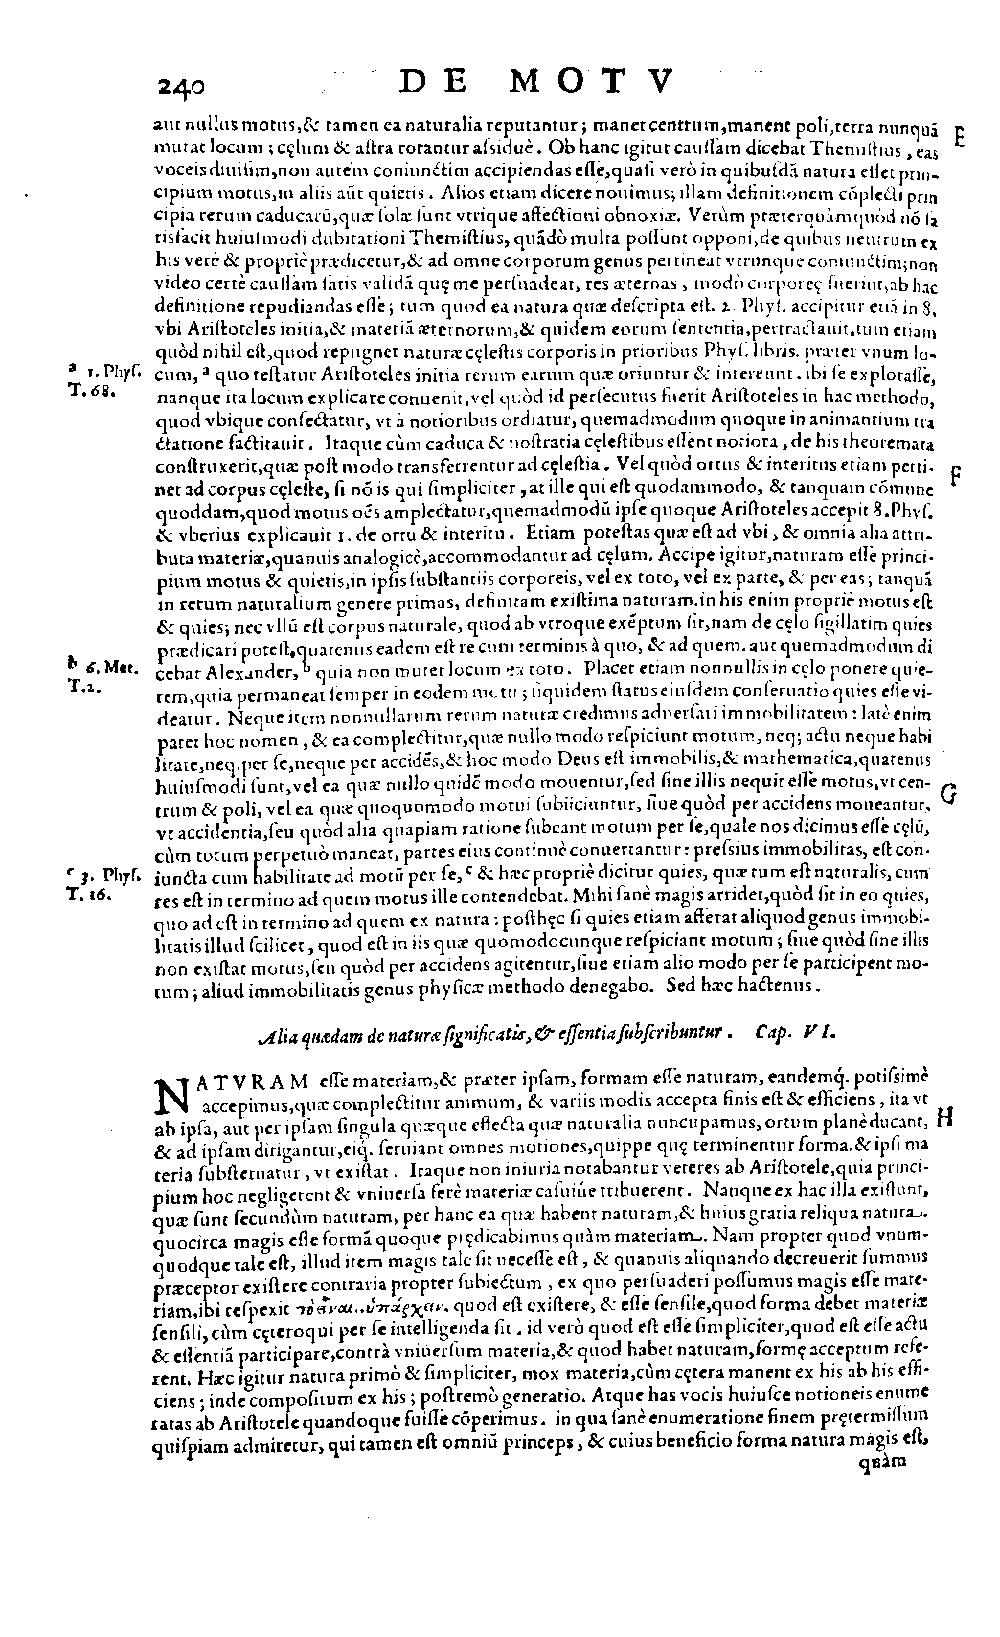 240 DE MOTV
aut nullus motus,& tamen ea naturalia reputantur; manet centrum,manent poli,terra nunquã E
mutat locum; cęlum & astra rotantur aſsiduè. Ob hanc igitur cauſſam dicebat Themiſtius, eas
voceis diuiſim,non autem coniunctim accipiendas eſſe,quaſi verò in quibuſdã natura eſſet prin-
cipium motus,in aliis aũt quietis. Alios etiam dicere nouimus; illam definitionem cõplecti prin
cipia rerum caducarũ,quæ ſolæ ſunt vtrique affectioni obnoxiæ. Verùm præterquàmquòd nõ ſa
tisfacit huiuſmodi dubitationi Themiſtius, quãdò multa poſſunt opponi,de quibus neutrum ex
his verè & propriè prædicetur,& ad omne corporum genus pertineat vtrunque coniunctim;non
video certè cauſſam ſatis validã quę me perſuadeat, res æternas, modò corporeę fuerint,ab hac
definitione repudiandas eſſe; tum quod ea natura quæ deſcripta eſt. 2. Phyſ. accipitur etiã in 8,
vbi Ariſtoteles initia,& materiã æternorum,& quidem eorum ſententia,pertractauit,tum etiam
quòd nihil eſt,quod repugnet naturæ cęleſtis corporis in prioribus Phyſ. libris. præter vnum lo-
a 1. Phyſ. T. 68.
cum, a quo teſtatur Ariſtoteles initia rerum earum quæ oriuntur & intereunt. ibi ſe exploraſſe,
nanque ita locum explicare conuenit,vel quòd id perſecutus fuerit Ariſtoteles in hac methodo,
quod vbique conſectatur, vt à notioribus ordiatur, quemadmodum quoque in animantium tra
ctatione factitauit. Itaque cùm caduca & noſtratia cęleſtibus eſſent notiora, de his theoremata
conſtruxerit,quæ poſt modo transferrentur ad cęleſtia. Vel quòd ortus & interitus etiam perti- F
net ad corpus cęleſte, ſi nõ is qui ſimpliciter, at ille qui eſt quodammodo, & tanquam cõmune
quoddam,quod motus oẽs amplectatur,quemadmodũ ipſe quoque Ariſtoteles accepit 8.Phyſ.
& vberius explicauit 1. de ortu & interitu. Etiam poteſtas quæ eſt ad vbi, & omnia alia attri-
buta materiæ,quanuis analogicè,accommodantur ad cęlum. Accipe igitur,naturam eſſe princi-
pium motus & quietis,in ipſis ſubſtantiis corporeis, vel ex toto, vel ex parte, & per eas; tanquã
in rerum naturalium genere primas, definitam exiſtima naturam.in his enim propriè motus eſt
& quies; nec vllũ eſt corpus naturale, quod ab vtroque exẽptum ſit,nam de cęlo ſigillatim quies
prædicari poteſt,quatenus eadem eſt re cum terminis à quo, & ad quem. aut quemadmodum di
b 6. Met. T.2.
cebat Alexander, b quia non mutet locum ex toto. Placet etiam nonnullis in cęlo ponere quie-
tem,quia permaneat ſemper in eodem motu; ſiquidem ſtatus eiuſdem conſeruatio quies eſſe vi-
deatur. Neque item nonnullarum rerum naturæ credimus aduerſari immobilitatem: latè enim
patet hoc nomen, & ea complectitur,quæ nullo modo reſpiciunt motum, neq; actu neque habi
litate,neq.per ſe,neque per accidẽs,& hoc modo Deus eſt immobilis,& mathematica,quatenus
huiuſmodi ſunt,vel ea quæ nullo quidẽ modo mouentur,ſed ſine illis nequit eſſe motus,vt cen- G
trum & poli, vel ea quæ quoquomodo motui ſubiiciuntur, ſiue quòd per accidens moueantur,
vt accidentia,ſeu quòd alia quapiam ratione ſubeant motum per ſe,quale nos dicimus eſſe cęlũ,
cùm totum perpetuò maneat, partes eius continuè conuertantur: preſsius immobilitas, eſt con-
c 3. Phyſ. T. 16.
iuncta cum habilitate ad motũ per ſe, c & hæc propriè dicitur quies, quæ tum eſt naturalis, cum
res eſt in termino ad quem motus ille contendebat. Mihi ſanè magis arridet,quòd ſit in eo quies,
quo ad eſt in termino ad quem ex natura: poſthęc ſi quies etiam afferat aliquod genus immobi-
litatis illud ſcilicet, quod eſt in iis quæ quomodocunque reſpiciant motum; ſiue quòd ſine illis
non exiſtat motus,ſeu quòd per accidens agitentur,ſiue etiam alio modo per ſe participent mo-
tum; aliud immobilitatis genus phyſicæ methodo denegabo. Sed hæc hactenus.
Alia quædam de naturæ ſignificatis, & eſſentia ſubſcribuntur. Cap. VI.
NATVRAM eſſe materiam,& præter ipſam, formam eſſe naturam, eandemq́. potiſsimè
accepimus,quæ complectitur animum, & variis modis accepta finis eſt & efficiens, ita vt
ab ipſa, aut per ipſam ſingula quæque effecta quæ naturalia nuncupamus, ortum planè ducant, H
& ad ipſam dirigantur,eiq́. ſeruiant omnes motiones,quippe quę terminentur forma.& ipſi ma
teria ſubſternatur, vt exiſtat. Itaque non iniuria notabantur veteres ab Ariſtotele,quia princi-
pium hoc negligerent & vniuerſa ferè materiæ caſuiúe tribuerent. Nanque ex hac illa exiſtunt,
quæ ſunt ſecundùm naturam, per hanc ea quæ habent naturam,& huius gratia reliqua natura.
quocirca magis eſſe formã quoque prędicabimus quàm materiam. Nam propter quod vnum-
quodque tale eſt, illud item magis tale ſit neceſſe eſt, & quanuis aliquando decreuerit ſummus
præceptor exiſtere contraria propter ſubiectum, ex quo perſuaderi poſſumus magis eſſe mate-
riam,ibi reſpexit ὑπάρχειν. quod eſt exiſtere, & eſſe ſenſile,quod forma debet materiæ
ſenſili, cùm cęteroqui per ſe intelligenda ſit. id verò quod eſt eſſe ſimpliciter,quod eſt eſſe actu
& eſſentiã participare,contrà vniuerſum materia,& quod habet naturam,formę acceptum refe-
rent. Hæc igitur natura primò & ſimpliciter, mox materia,cùm cętera manent ex his ab his effi-
ciens; inde compoſitum ex his; poſtremò generatio. Atque has vocis huiuſce notioneis enume
ratas ab Ariſtotele quandoque fuiſſe cõperimus. in qua ſanè enumeratione finem prętermiſſum
quiſpiam admiretur, qui tamen eſt omniũ princeps, & cuius beneficio forma natura magis eſt,
quàm